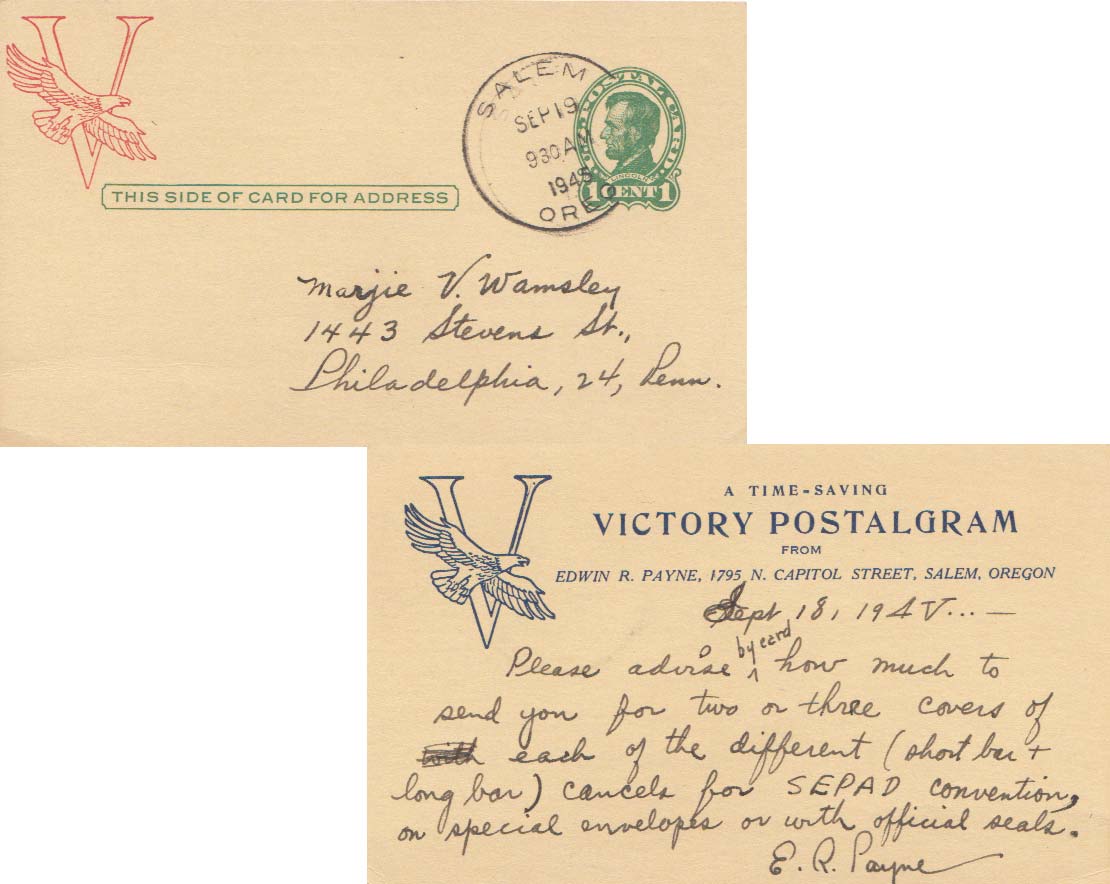 V
SALEM
SEP 19
9 30 AM
1945
ORE
U.S. POSTAL CARD
LINCOLN
1 CENT 1
THIS SIDE OF CARD FOR ADDRESS
Marjie V. Wamsley
1443 Stevens St.,
Philadelphia, 24, Penn.
V
A TIME-SAVING
VICTORY POSTALGRAM
FROM
EDWIN R. PAYNE, 1795 N. CAPITOL STREET, SALEM, OREGON
Sept 18, 194V...—
Please advise by card how much to
send you for two or three covers of
each of the different (short bar +
long bar) cancels for SEPAD convention,
on special envelopes or with official seals.
E. R. Payne